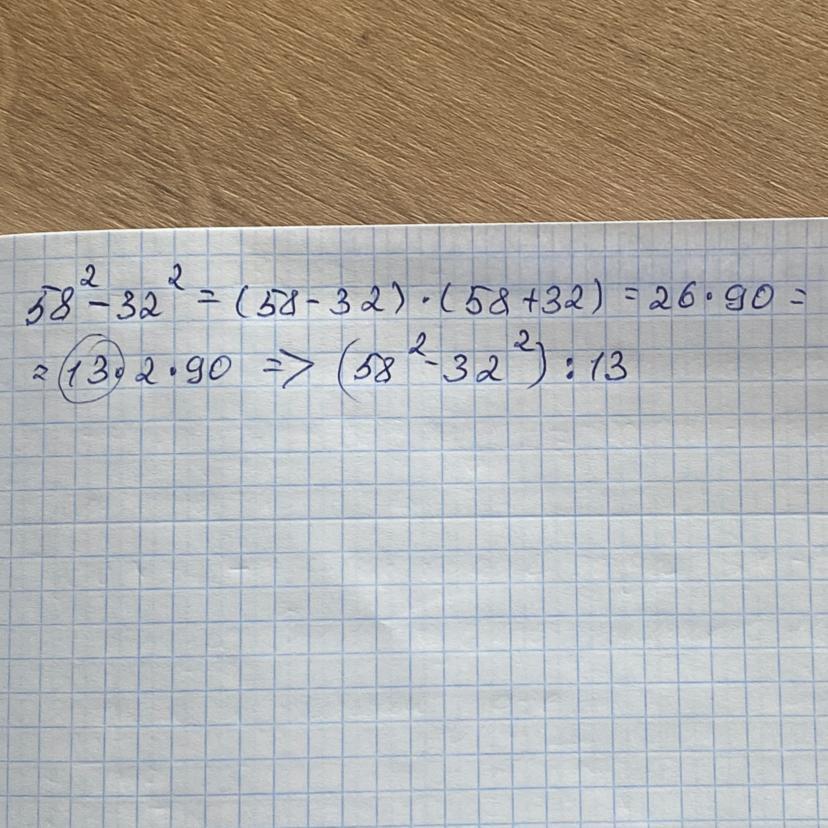 58² - 32² = (58 - 32) · (58 + 32) = 26 · 90 =
= 13 · 2 · 90 => (58² - 32²) : 13